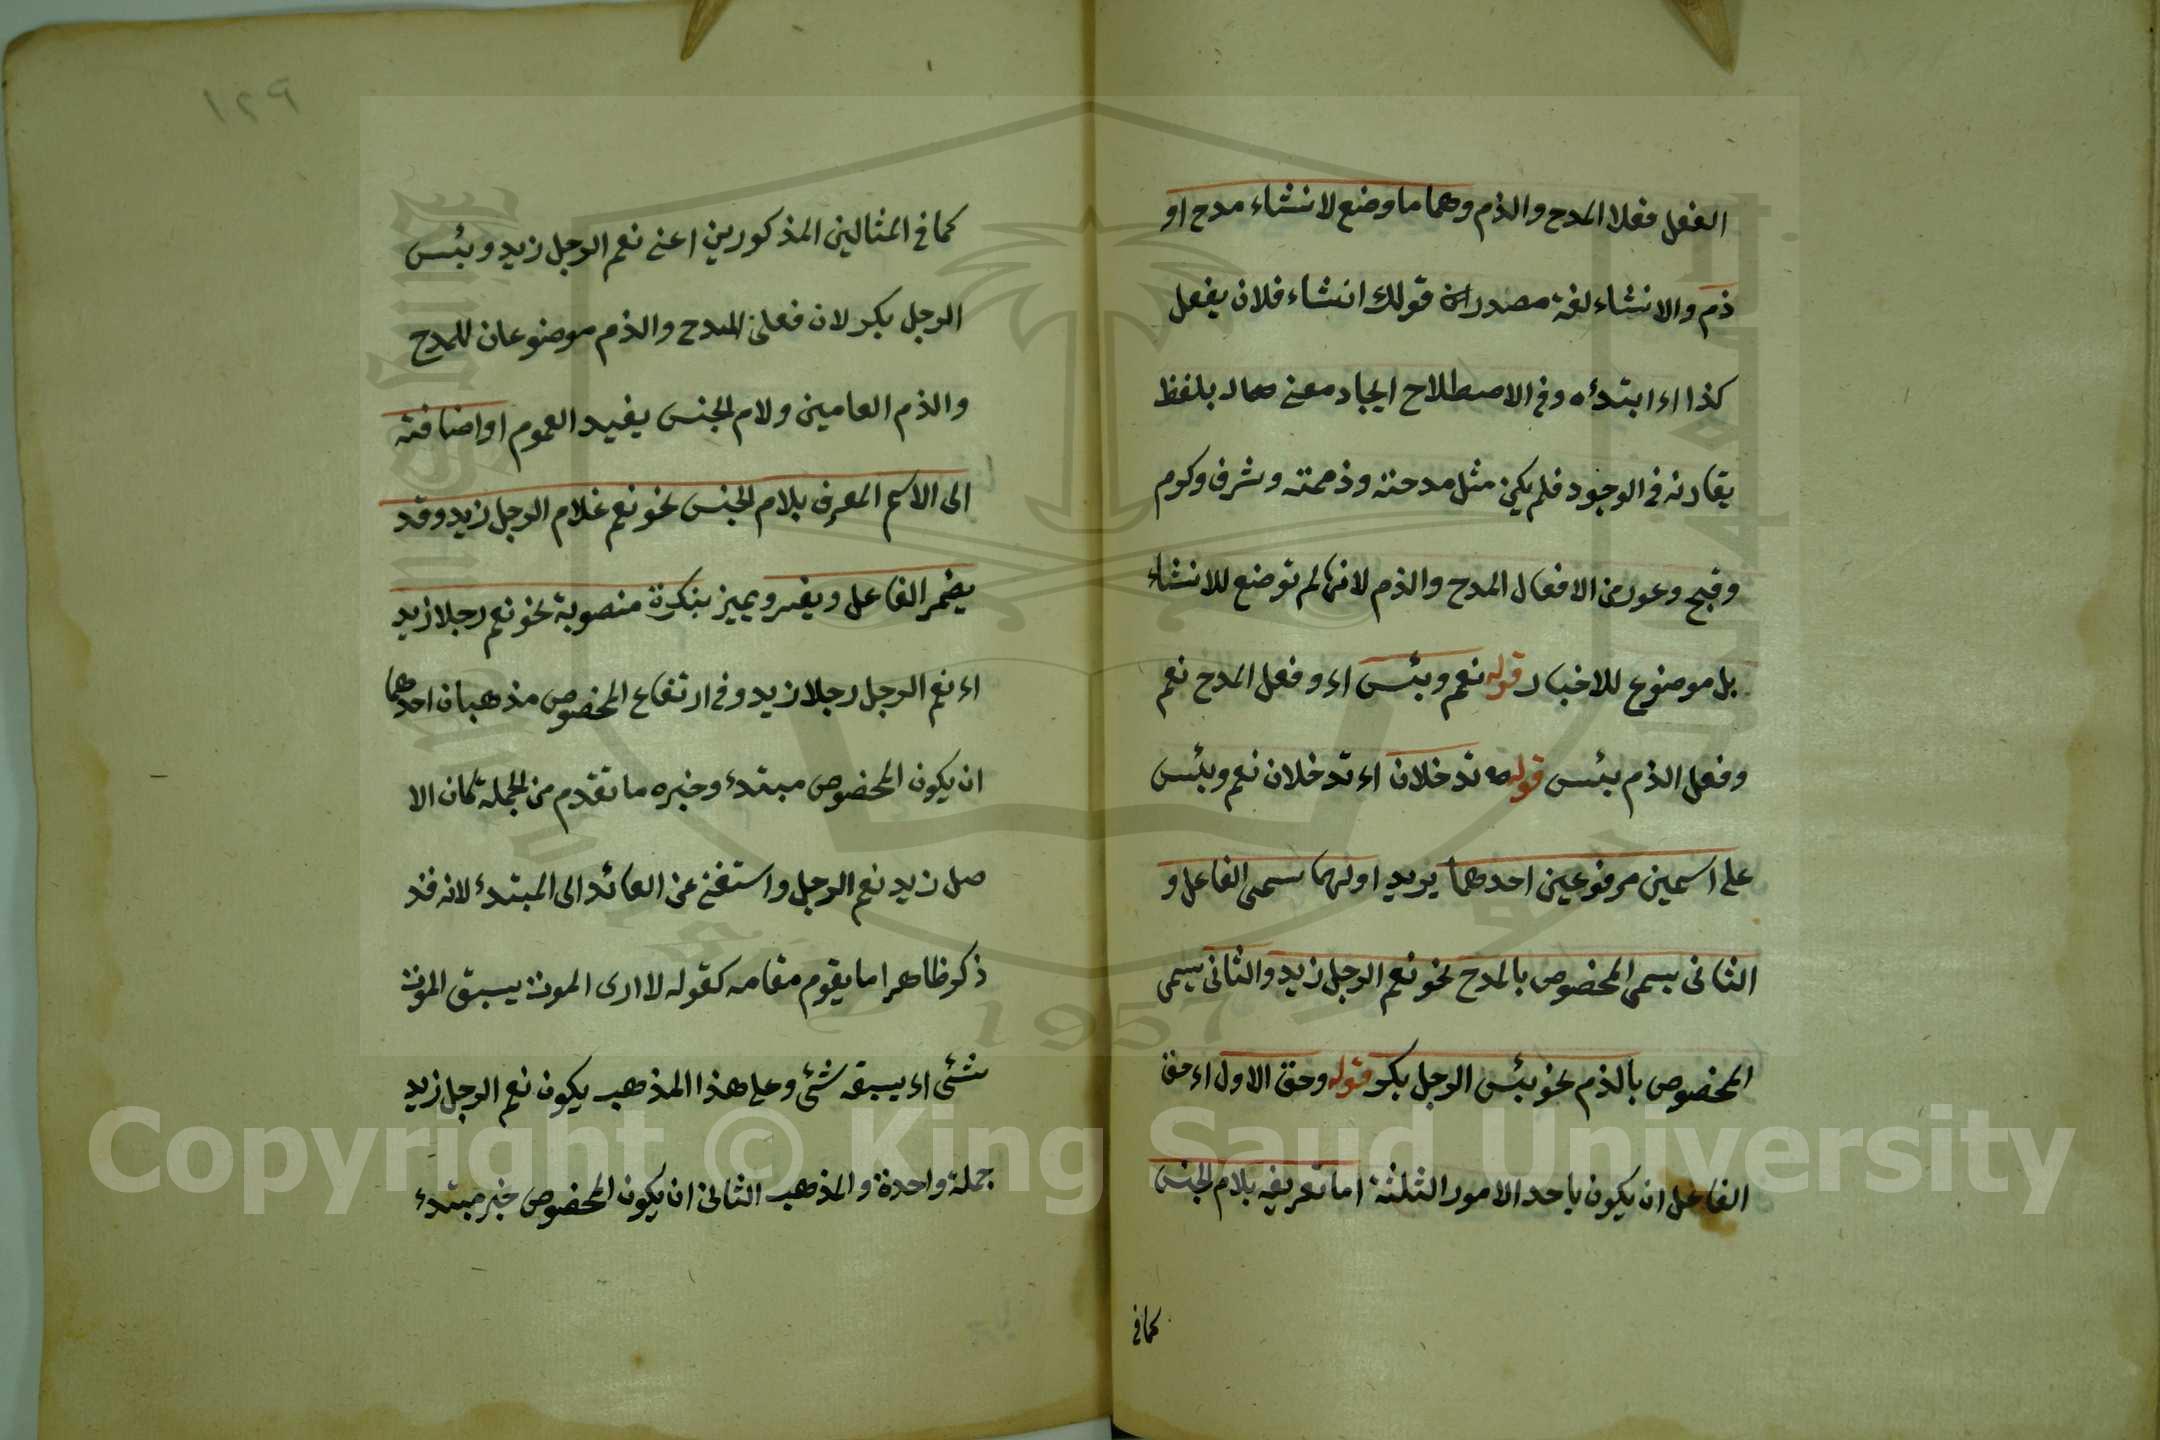 الفعل فعلا المدح والذم وهما ما وضع لانشاء مدح او
ذم والانشاء لغة مصدر قولك انشاء فلان يفعل
كذا اء ابتدأه وفي الاصطلاح ايجاد معنى بلفظ
يقارنه في الوجود فلم يكن مثل مدحته وذممته وشرف وكرم
وقبح وعور من الافعال المدح والذم لانها لم توضع للانشاء
بل موضوع للاخبار قوله نعم وبئس اء وفعل المدح نعم
وفعل الذم بئس قوله تدخلان اء تدخلان نعم وبئس
على اسمين مرفوعين احدهما يريد اولهما سمى الفاعل و
الثانى يسمى المخصوص بالمدح نحو نعم الرجل زيد والثانى يسمى
المخصوص بالذم نحو بئس الرجل بكر قوله وحق الاول اء حق
الفاعل ان يكون باحد الامور الثلثة اما تعريفه بلام الجنس
كما في
١٤٩
كما في المثالين المذكورين اعنى نعم الرجل زيد وبئس
الرجل بكر لان فعلى المدح والذم موضوعان للمدح
والذم العامين ولام الجنس يفيد العموم او اضافته
الى الاسم المعرف بلام الجنس نحو نعم غلام الرجل زيد وقد
يضمر الفاعل ويفسر ويميز بنكرة منصوبة نحو نعم رجلا زيد
اء نعم الرجل رجلا زيد وفي ارتفاع المخصوص مذهبان احدهما
ان يكون المخصوص مبتدء وخبره ما تقدم من الجملة كان الا
صل زيد نعم الرجل واستغنى عن العائد الى المبتدء لانه قد
ذكر ظاهرا ما يقوم مقامه كقوله لا ارى الموت يسبق الموت
شئى اء يسبقه شئى وعلى هذا المذهب يكون نعم الرجل زيد
جملة واحدة والمذهب الثانى ان يكون المخصوص خبر مبتدء
Copyright © King Saud University
1957